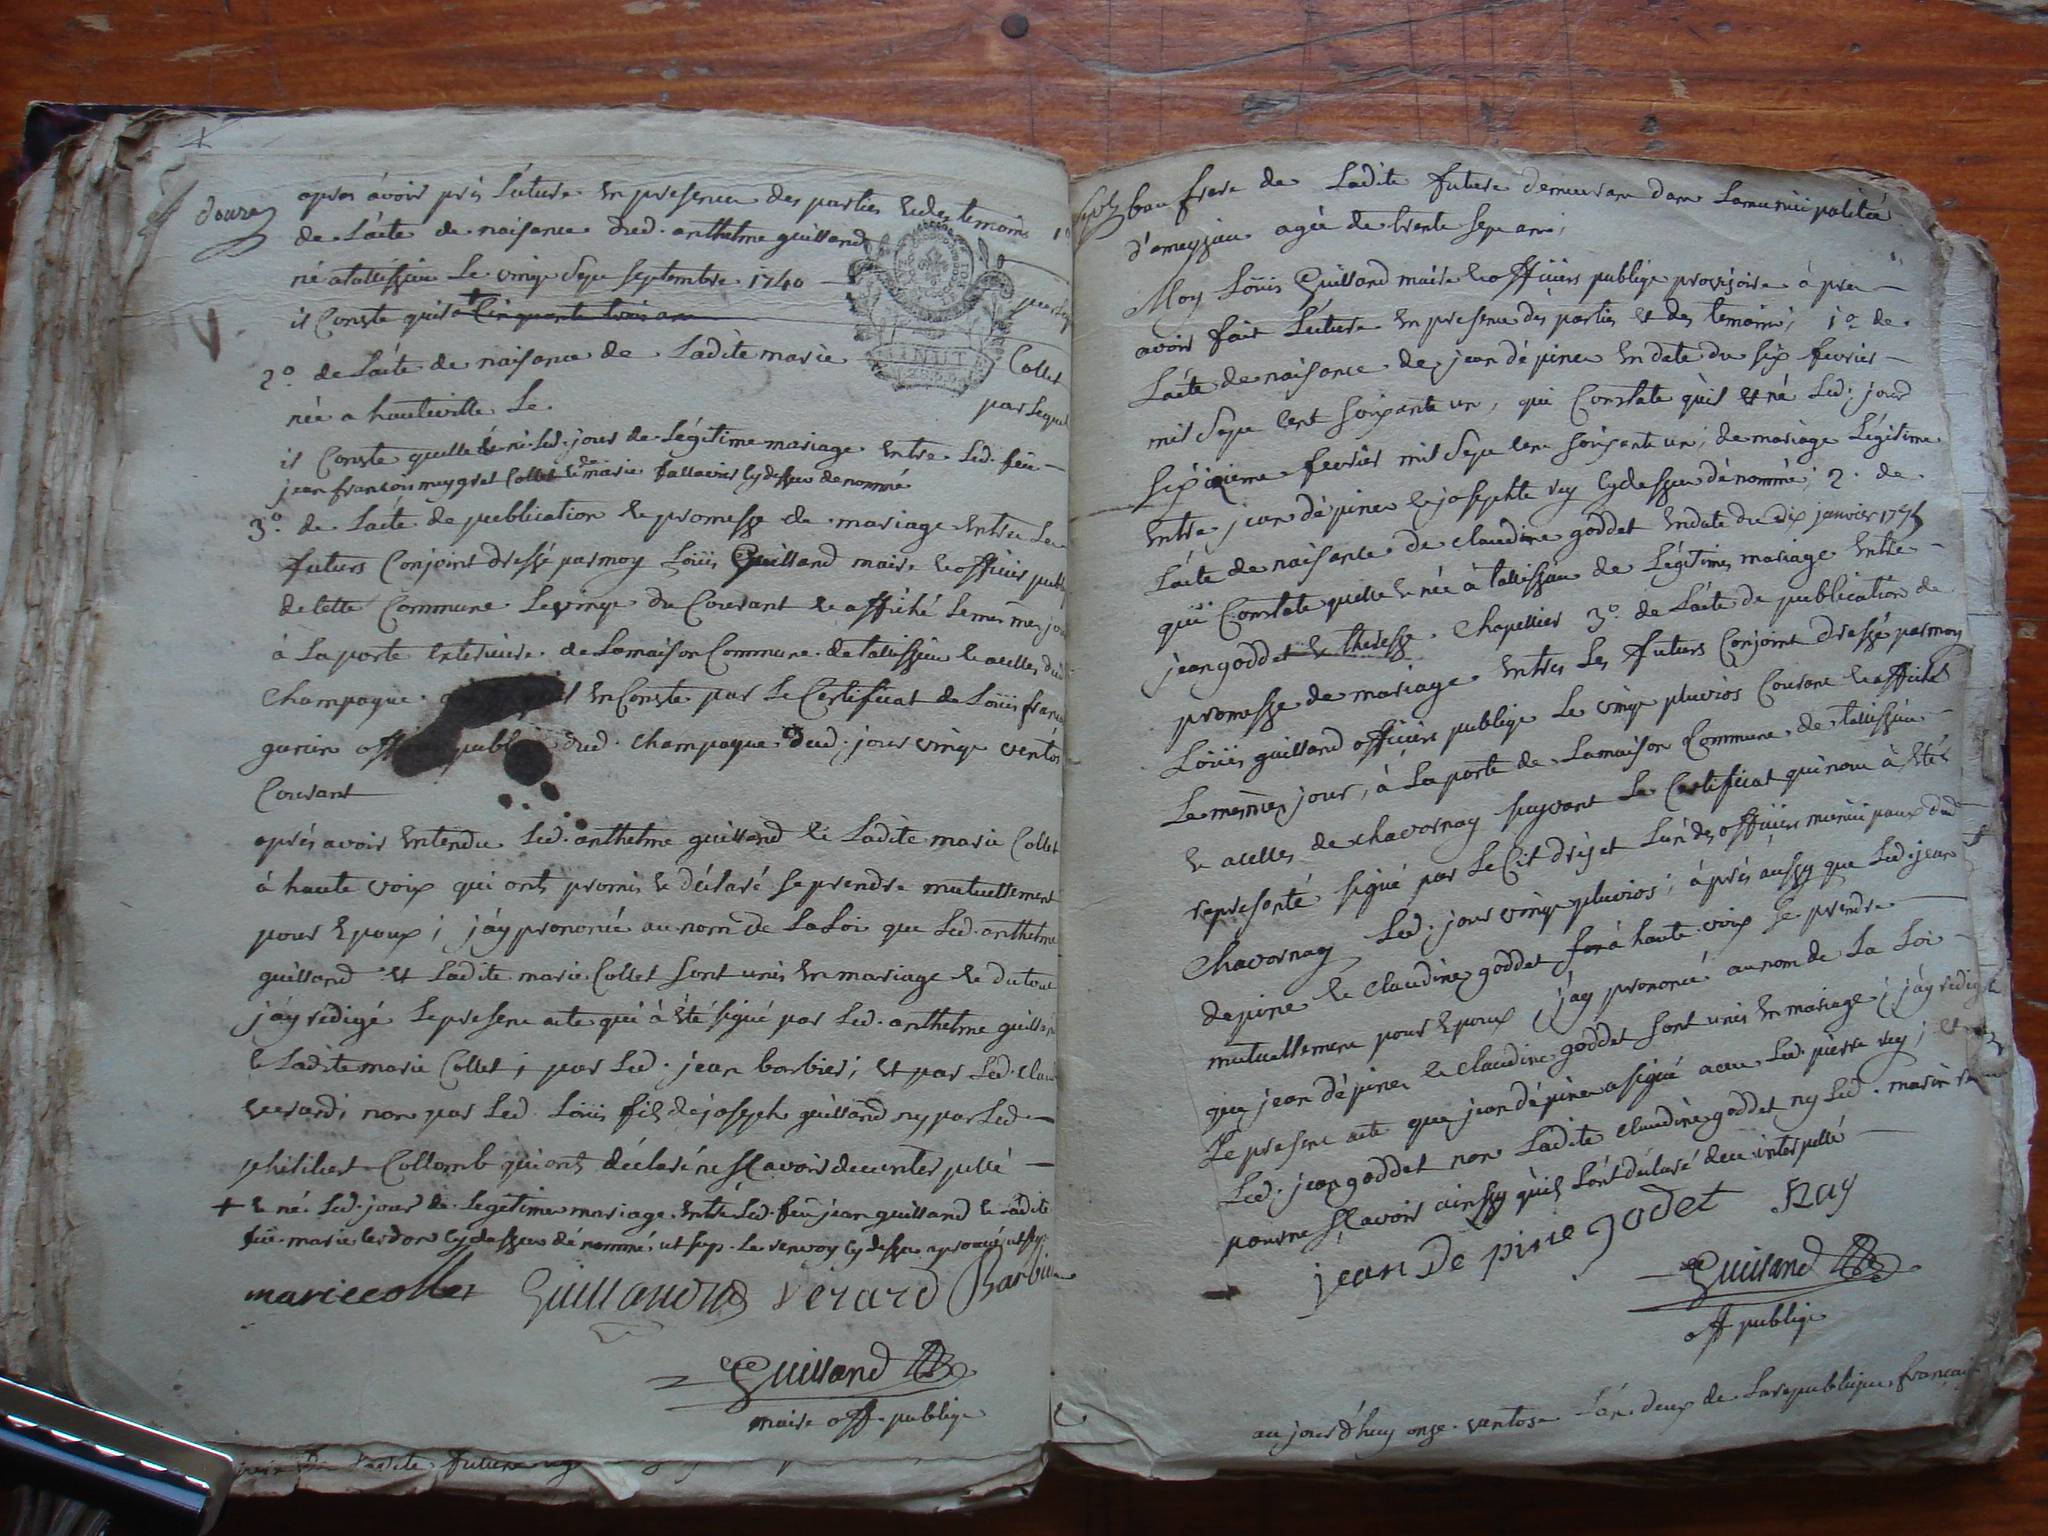 douze
apres avoir pris lecture en presence des parties et des temoins 1°
de l'acte de naisance dud. anthelme guilland
né a talissieu le vingt sept septembre 1740
il conste quil a cinquante trois ans
2° de l'acte de naisance de ladite marie Collet
née a hauteville le par lequel
il conste quelle né led. jour de légitime mariage entre led. feu
jean francois muygret Collet et de marie ballavier cy dessus denommé
3° de l'acte de publication de promesse de mariage entre les
futurs conjoint dressé par moy Loüis Guilland maire et officier publi
de cette Commune le vingt du Courant et affiché le mesme jou
à la porte exterieure de la maison Commune de talissieu et a celles du
champagne il en Conste par le Certificat de Loüis franc
garin off publi dud. champagne dud. jour vingt ventos
Courant
aprés avoir entendu led. anthelme guilland et ladite marie Collet
à haute voix qui ont promis et déclaré se prendre mutuellement
pour epoux ; j'ay prononcé au nom de la Loi que led. anthelme
guilland et ladite marie Collet sont unis en mariage et du tout
j'ay rédigé le present acte qui à été signé par led. anthelme guillan
et ladite marie Collet ; par led. jean barbier ; et par led. clau
verard ; non par led. Loüis fils de joseph guilland ny par led.
philibert Collomb qui ont déclaré ne scavoir de ce interpellé
+ et né led. jour de legitime mariage entre led. feu jean guilland et ladite
marie cy dessus dénommé le renvoy cy dessus aprouvé
marie collet Guilland Verard Barbier
Guilland
maire off. publiq
ladite future
bau frere de ladite future demeurant dans la municipalitée
d'ameyzieu agée de trente sept ans ;
Moy Loüis Guilland maire et officiers publique provisoire à pres
avoir fait lecture en presence des parties et des temoins ; 1° de
l'acte de naisance de jean dépine en date du six fevrier
mil sept cent soixante un, qui Constate qu'il est né led. jour
sixieme fevrier mil sept cent soixante un ; de mariage légitime
entre jean dépine et josephte rey cy dessus dénommé ; 2. de
l'acte de naisance de claudine goddet en date du dix janvier
qui Constate quelle et née à talissieu de légitime mariage entre
jean goddet et theresse Chapellier 3° de l'acte de publication de
promesse de mariage entres les futurs Conjoint dressé par moy
Loüis guilland officier publique le vingt pluvios Courant et affiché
le mesmes jour, à la porte de la maison Commune de talissieu
et a celles de chavornay suyvant le Certificat qui nous à été
representé signé par le Cit dréset l'un des officiers municipaux dud
Chavornay led. jour vingt pluvios ; à prés aussy que led. jean
depine et claudine goddet à haute voix se prendre
mutuellement pour epoux j'ay prononcé au nom de la Loi
que jean dépine et claudine goddet sont unis en mariage ; j'ay redigé
le present acte que jean dépine a signé avec led. pierre rey ; et
led. jean goddet non ladite claudine goddet ny led. marin
pour ne scavoir ainssy qu'ils l'ont déclaré de ce interpellé
jean De pine godet Ray
Guilland
off publiqe
aujourd'huy onze ventose l'an deux de la republique français